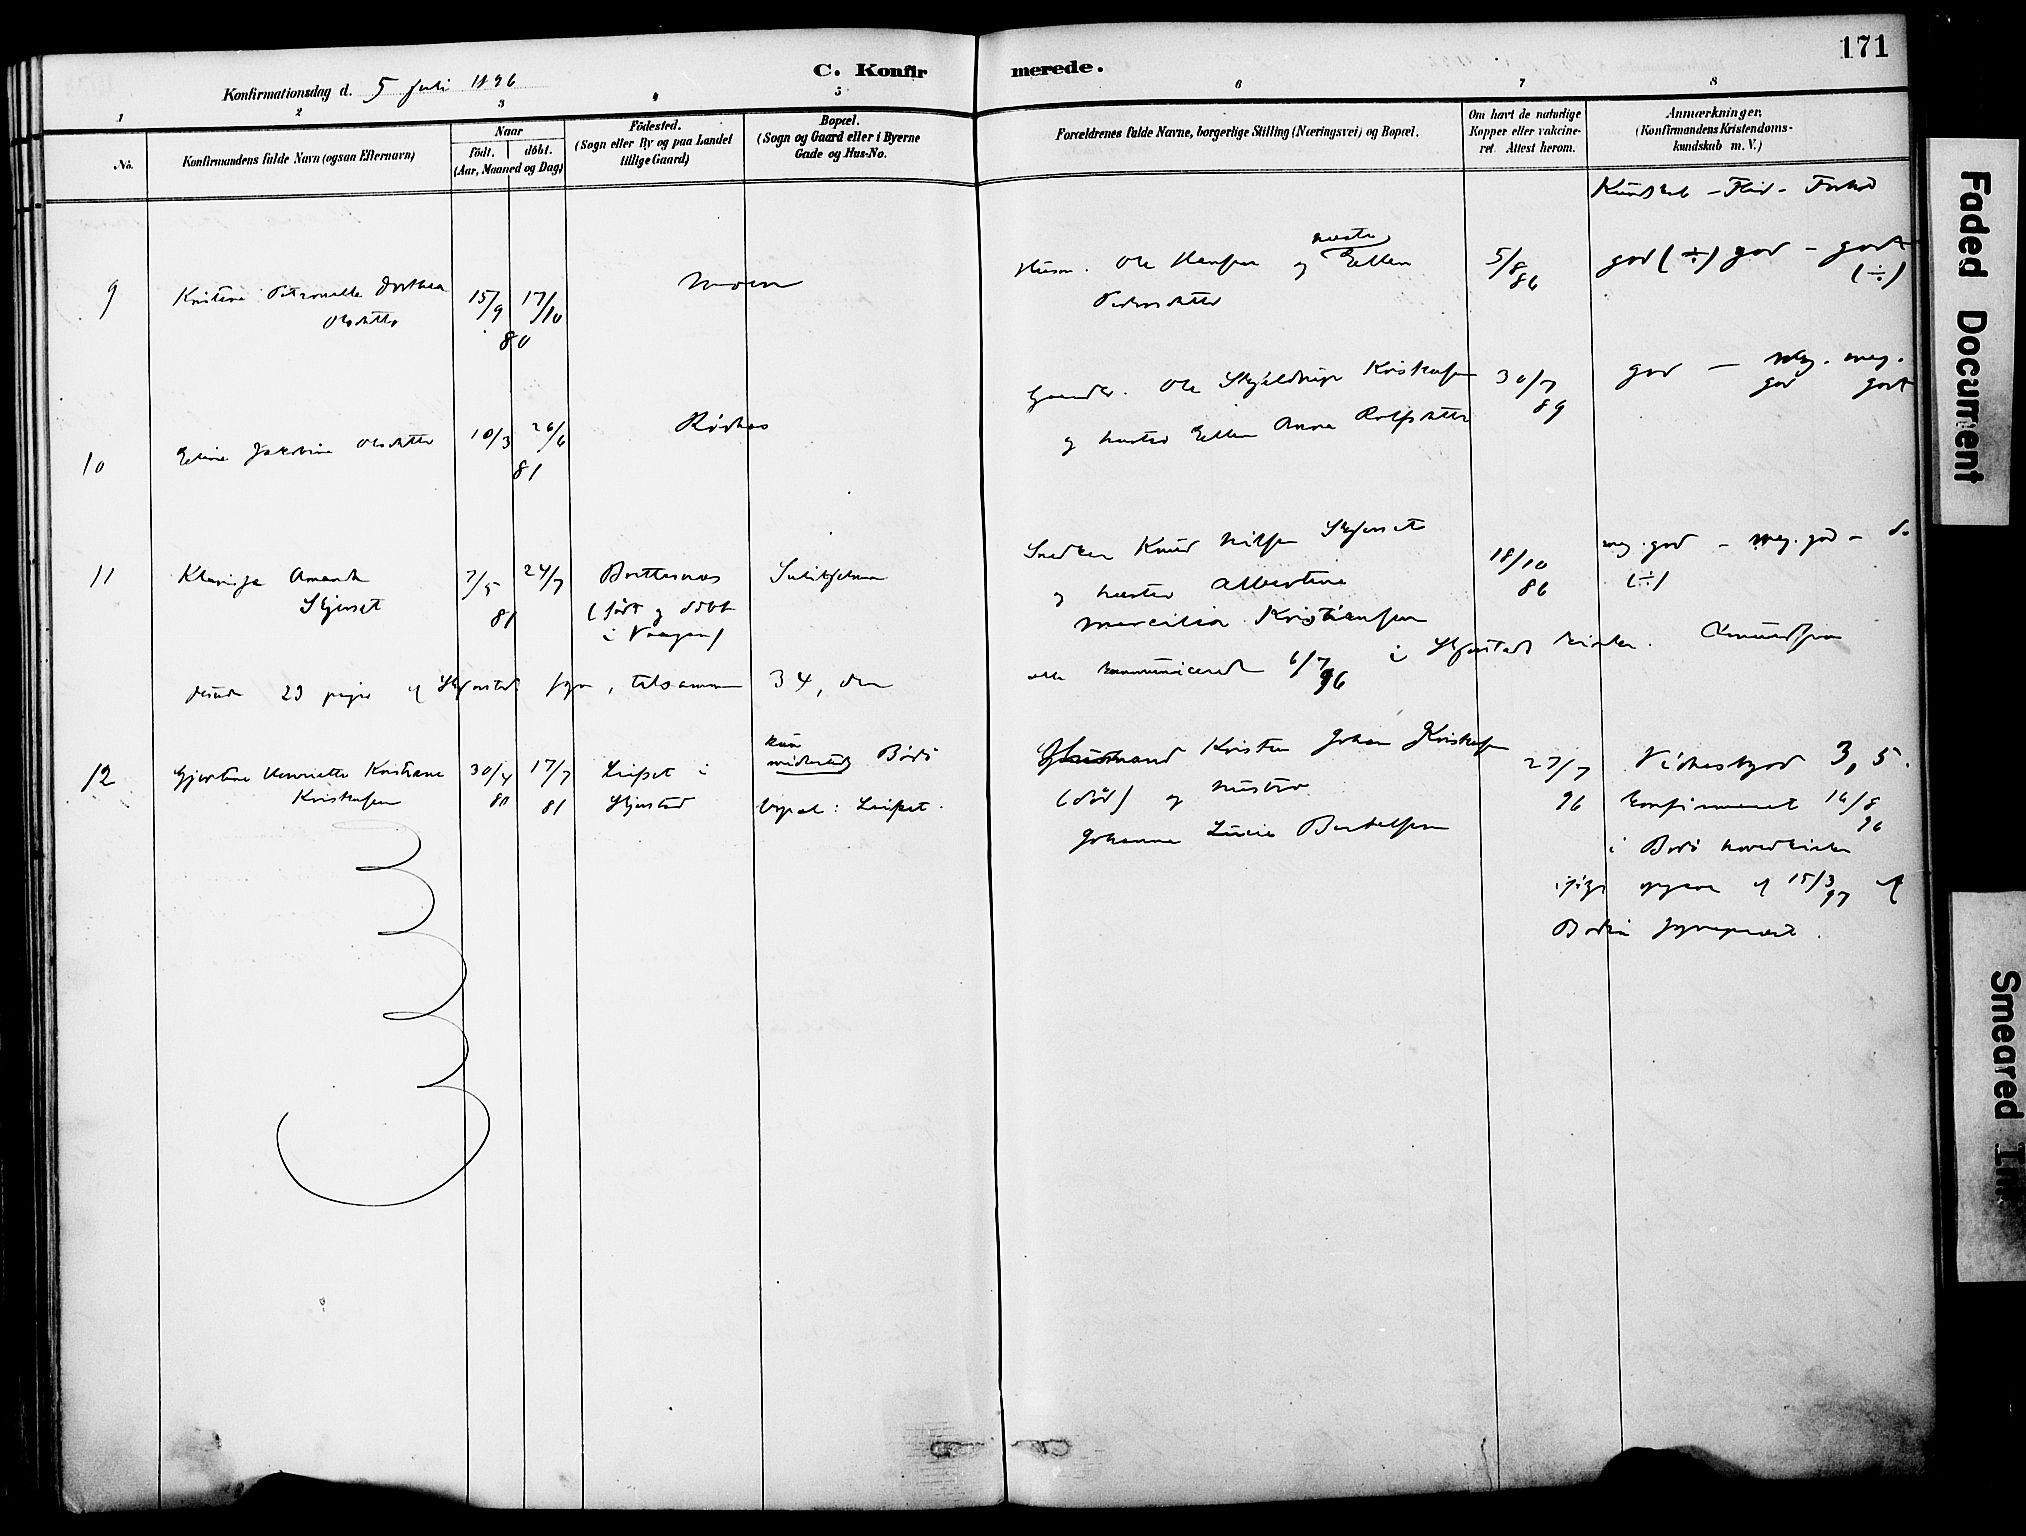 171
C. Konfirmerede.
Konfirmationsdag d. 5 Juli 1896
1 2 3 4 5 6 7 8
No.
Konfirmandens fulde Navn (ogsaa Efternavn)
Naar
födt. döbt.
(Aar, Maaned og Dag)
Födested.
(Sogn eller By og paa Landet
tillige Gaard)
Bopæl.
(Sogn og Gaard eller i Byerne
Gade og Hus-No.
Forældrenes fulde Navne, borgerlige Stilling (Næringsvei) og Bopæl.
Om havt de naturlige
Kopper eller vakcine-
ret. Attest herom.
Anmærkninger.
(Konfirmandens Kristendoms-
kundskab m. V.)
Kundskab - Flid - Forhold
9
Kristine Petronelle Dorthea
Olsdatter
15/9 17/10
80
Moen
Husm. Ole Hansen og hustru Ellen
Pedersdatter
5/8
86
god (÷) god - godt
(÷)
10
Eline Jakobine Olsdatter
10/3 26/6
81
Røsnes
Gaardbr. Ole Skjeldrup Kristofsen
og hustru Ellen Anna Rolfsdatter
30/7
89
god - meg. meg.
god godt
11
Klarissa Amanda
Skjerset
7/5 24/7
81
Brettesnes
(født og døbt
i Vaagan)
Sulitjelma
Snedker Knud Nilsen Skjerset
og hustru Albertine
Marcilia Kristiansen
18/10
86
meg. god - meg. god - do
(÷)
desuden 23 piger af Skjerstad sogn, tilsammen 34, der
alle kommunicerede 6/7 96 i Skjerstad kirke. Knudsen
12
Gjertine Henriette Kristiane
Kristofsen
30/4 17/7
81 81
Leifset i
Skjerstad
kun
midlertidig Bodö
bopæl: Leifset.
Husmand Kristen Johan Kristofsen
(död) og hustru
Johanna Lucie Bertelsen
27/7
96
Vidnesbyrd 3,5.
konfirmeret 16/8
96
i Bodö hovedkirke
ifölge opgave af 15/3 97 af
Bodin sogneprest.
Faded Document
Smeared Ink